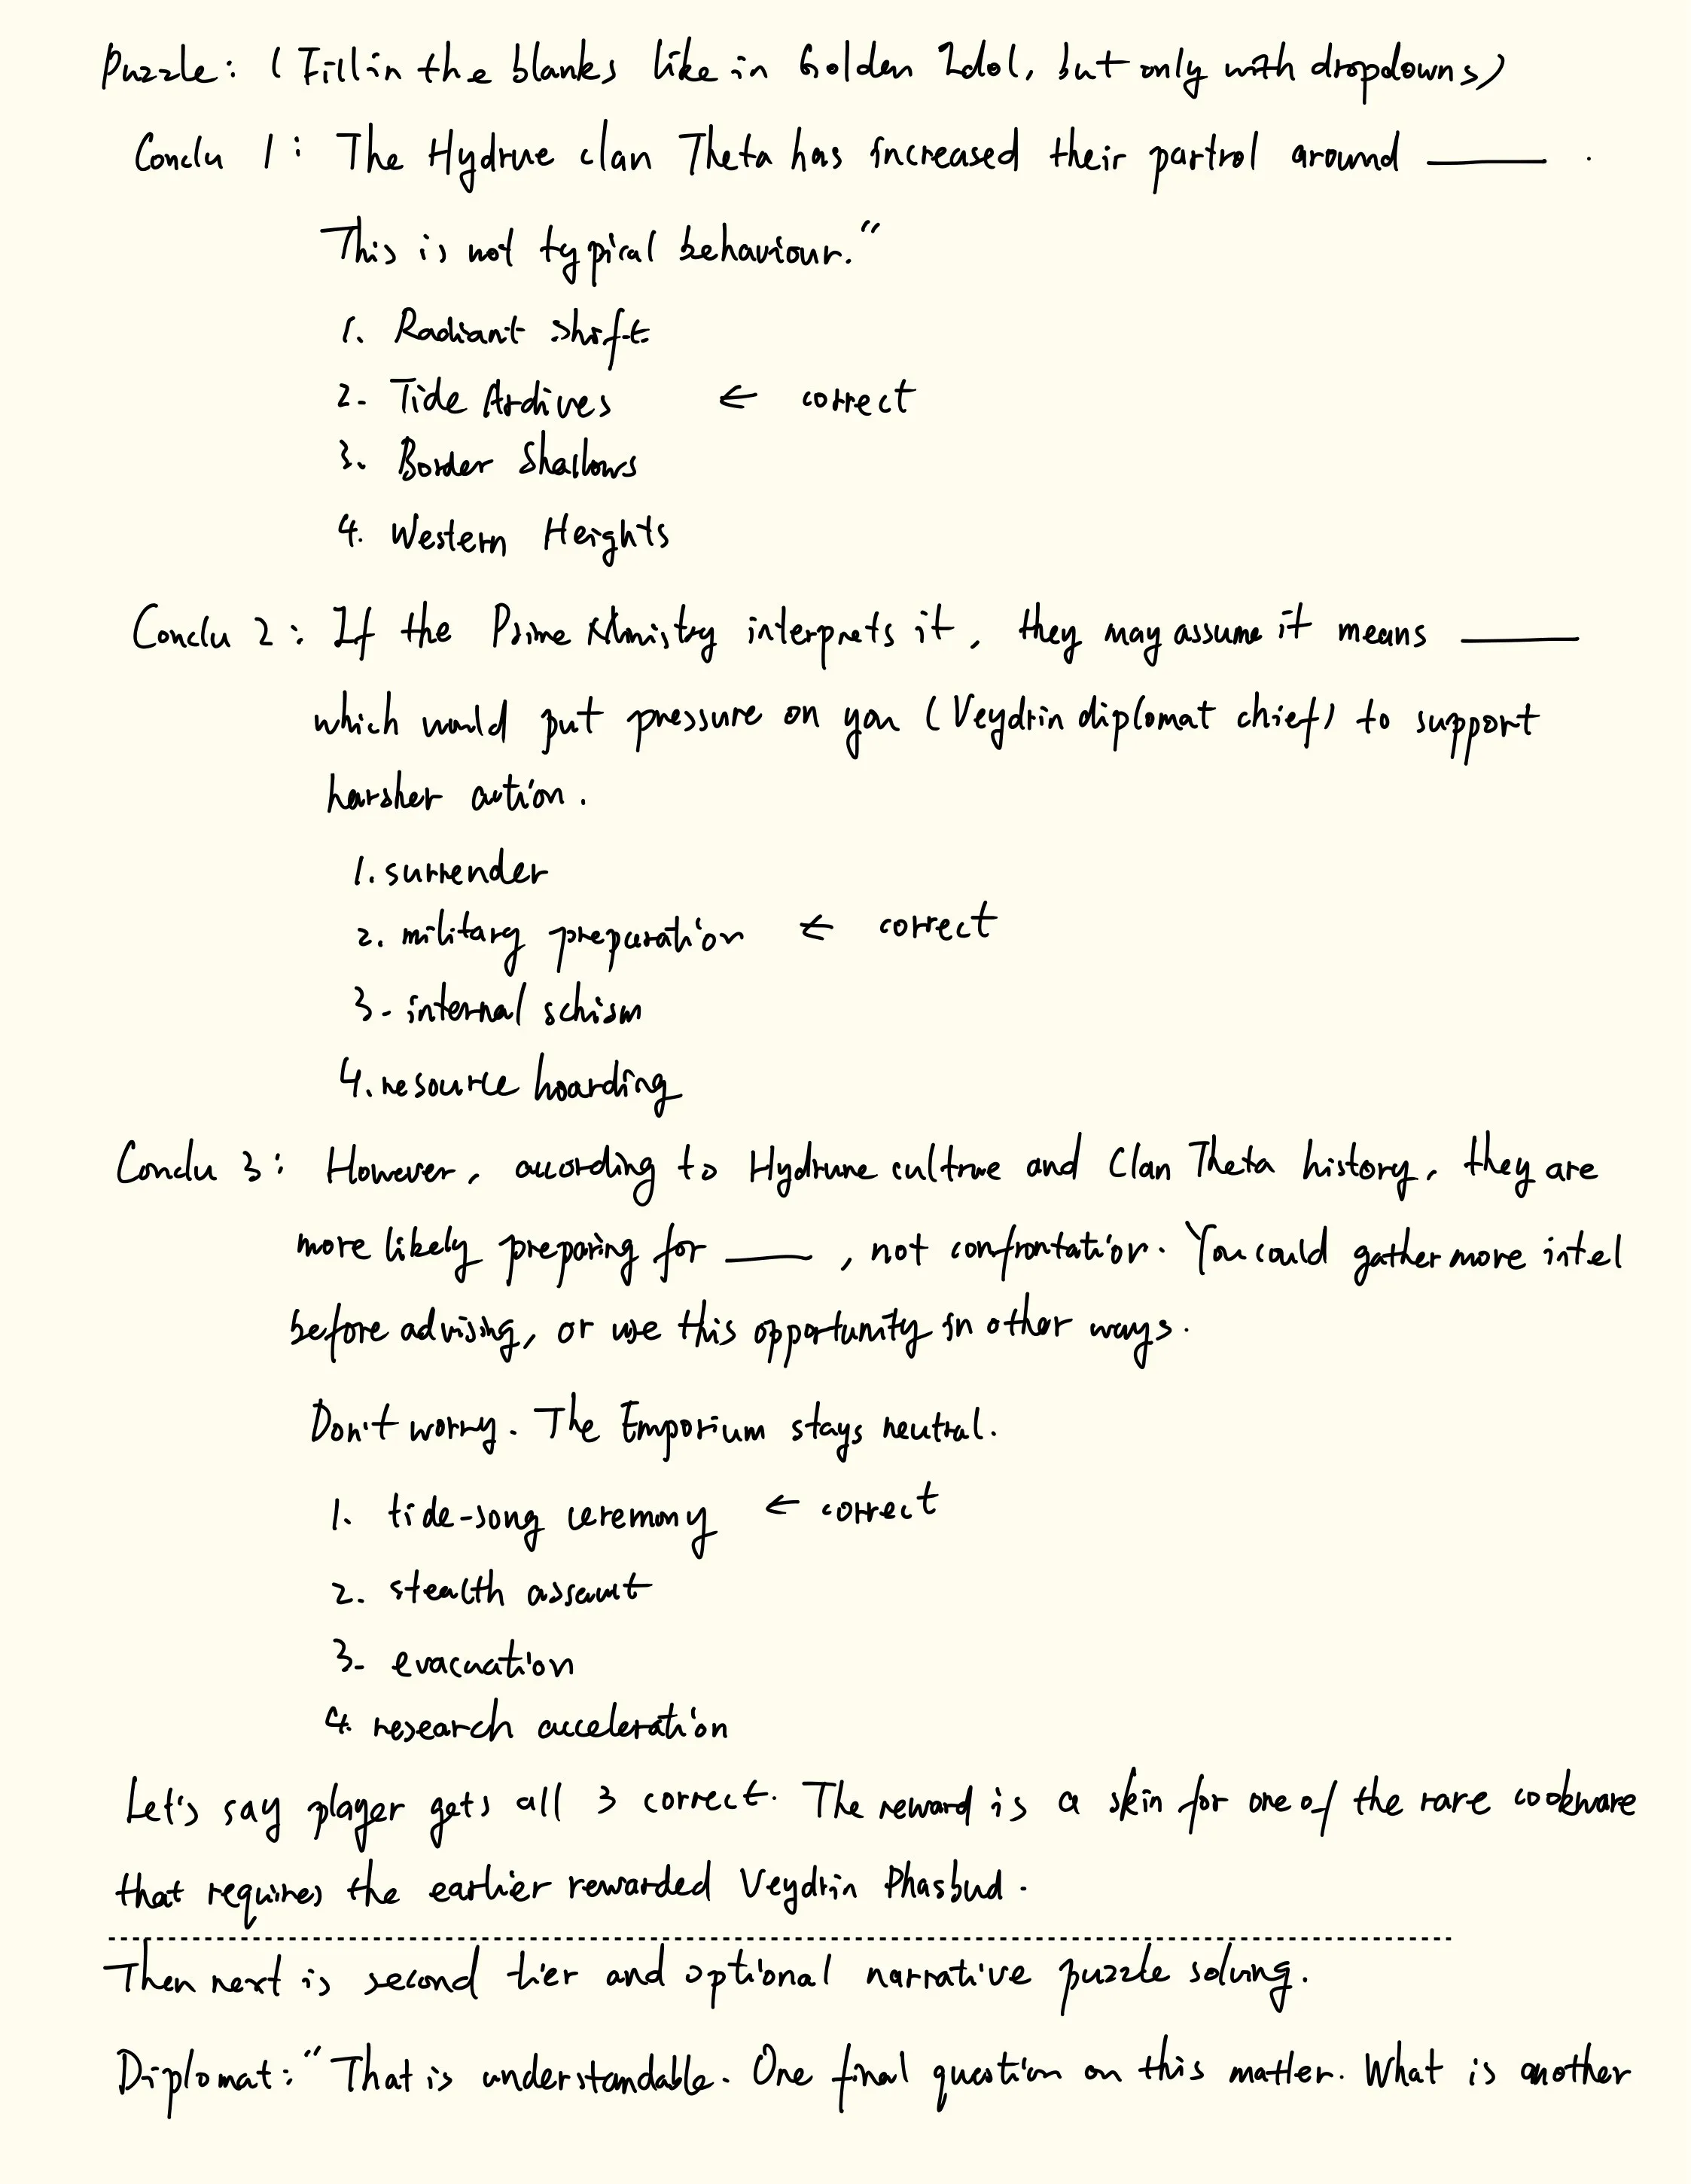 Puzzle: (Fill in the blanks like in Golden Idol, but only with dropdowns)
Conclu 1: The Hydrue clan Theta has increased their partrol around ____ .
This is not typical behaviour."
1. Radiant Shift
2. Tide Ardives ← correct
3. Border Shallows
4. Western Heights
Conclu 2: If the Prime Ministry interprets it, they may assume it means ____
which would put pressure on you (Veydrin diplomat chief) to support
harsher action.
1. surrender
2. military preparation ← correct
3. internal schism
4. resource hoarding
Conclu 3: However, according to Hydrune cultrue and Clan Theta history, they are
more likely preparing for ____, not confrontation. You could gather more intel
before advising, or use this opportunity in other ways.
Don't worry. The Emporium stays neutral.
1. tide-song ceremony ← correct
2. stealth assault
3. evacuation
4. research acceleration
Let's say player gets all 3 correct. The reward is a skin for one of the rare cookware
that requires the earlier rewarded Veydrin Phasbud.
Then next is second tier and optional narrative puzzle solving.
Diplomat: "That is understandable. One final question on this matter. What is another